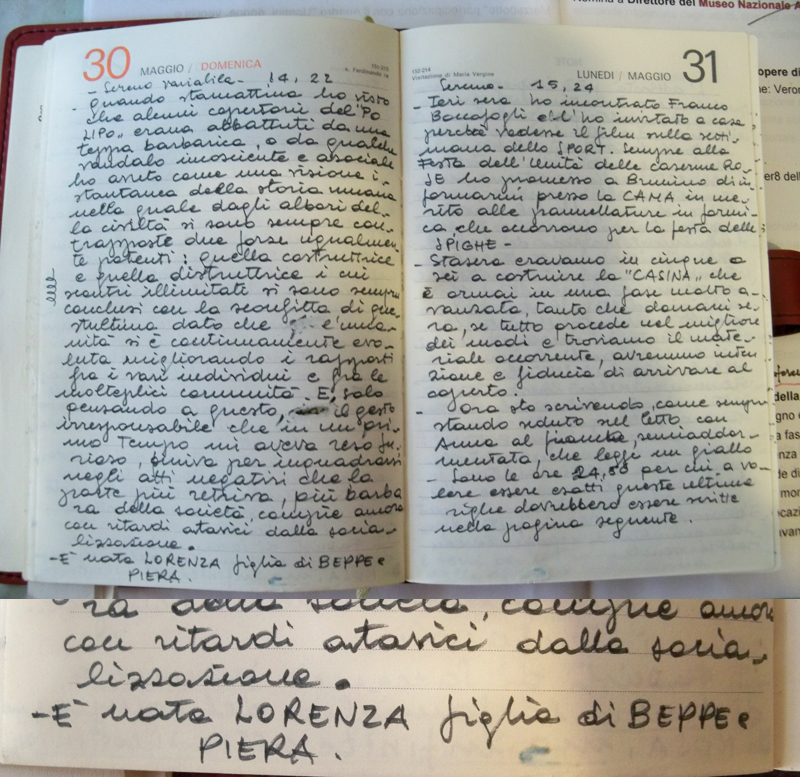 30 MAGGIO / DOMENICA
150-215
s. Ferdinando re
- Sereno variabile - 14, 22
- quando stamattina ho visto
che alcuni copertoni del "PO
LIPO" erano abbattuti da una
teppa barbarica, o da qualche
vandalo incosciente e asociale
ho avuto come una visione i-
stantanea della storia umana
nella quale dagli albori del-
la civiltà si sono sempre con-
trapposte due forze ugualmen-
te potenti: quella costruttrice
e quella distruttrice i cui
scontri illimitati si sono sempre
conclusi con la sconfitta di que-
st'ultima dato che l'uma-
nità si è continuamente evo-
luta migliorando i rapporti
fra i vari individui e fra le
molteplici comunità. E solo
pensando a questo, il gesto
irresponsabile che in un pri-
mo Tempo mi aveva reso fu-
rioso, finiva per inquadrarsi
negli atti negativi che la
parte più retriva, più barba
ra della società, compie ancora
con ritardi atavici dalla socia-
lizzazione.
- E' nata LORENZA figlia di BEPPE e
PIERA.
152-214
Visitazione di Maria Vergine
LUNEDI / MAGGIO 31
Sereno - 15, 24
- Ieri sera ho incontrato Franco
Boccafogli e l'ho invitato a casa
perché vedesse il film sulla setti-
mana dello SPORT. Sempre alla
Festa dell'Unità delle caserme RO-
SE ho promesso a Brunino di in
formarmi presso la CAMA in me-
rito alle pannellature in formi-
ca che occorrono per la festa delle
SPIGHE -
- Stasera eravamo in cinque o
sei a costruire la "CASINA" che
è ormai in una fase molto a-
vanzata, tanto che domani se-
ra, se tutto procede nel migliore
dei modi e troviamo il mate-
riale occorrente, avremmo inten
zione e fiducia di arrivare al
coperto.
- Ora sto scrivendo, come sempre
stando seduto sul letto con
Anna al fianco, semiaddor-
mentata, che legge un giallo
- Sono le ore 24,30 per cui a vo-
lere essere esatti queste ultime
righe dovrebbero essere scritte
nella pagina seguente.
Direttore del Museo Nazionale
ra della società, compie ancora
con ritardi atavici dalla socia-
lizzazione.
- E' nata LORENZA figlia di BEPPE e
PIERA.